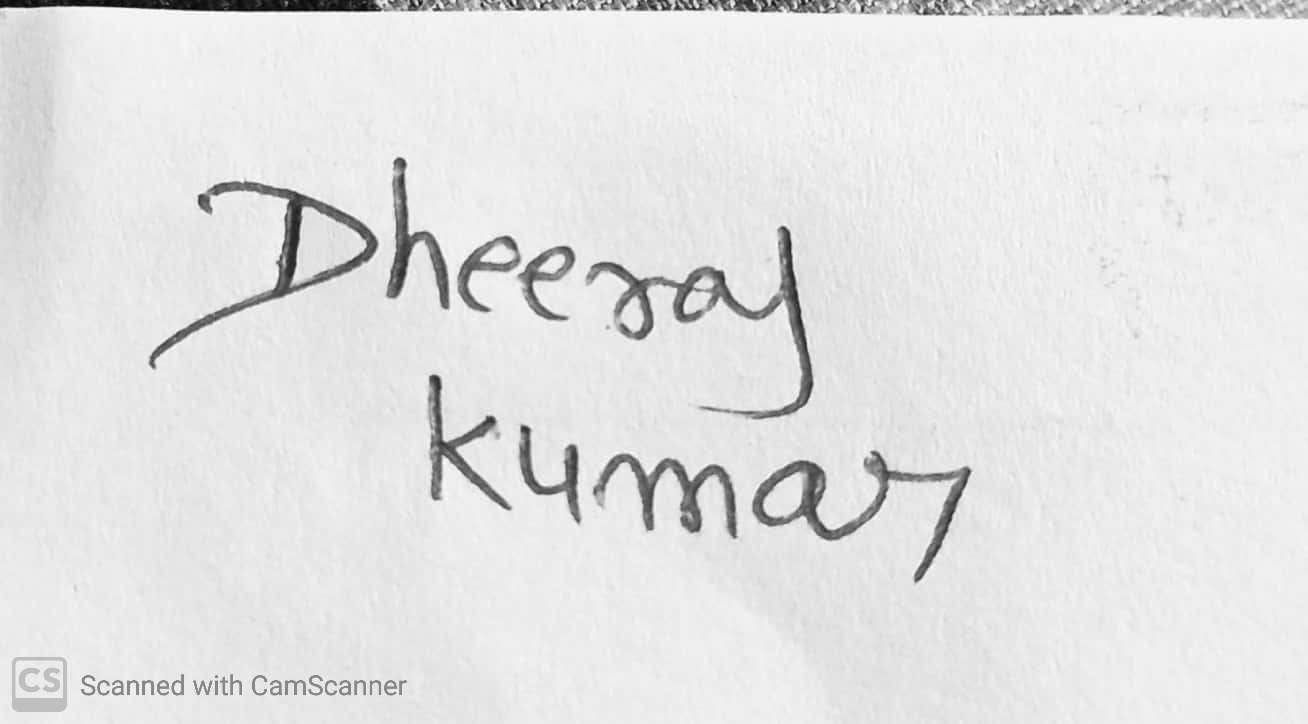 Dheeraj
Kumar
CS Scanned with CamScanner